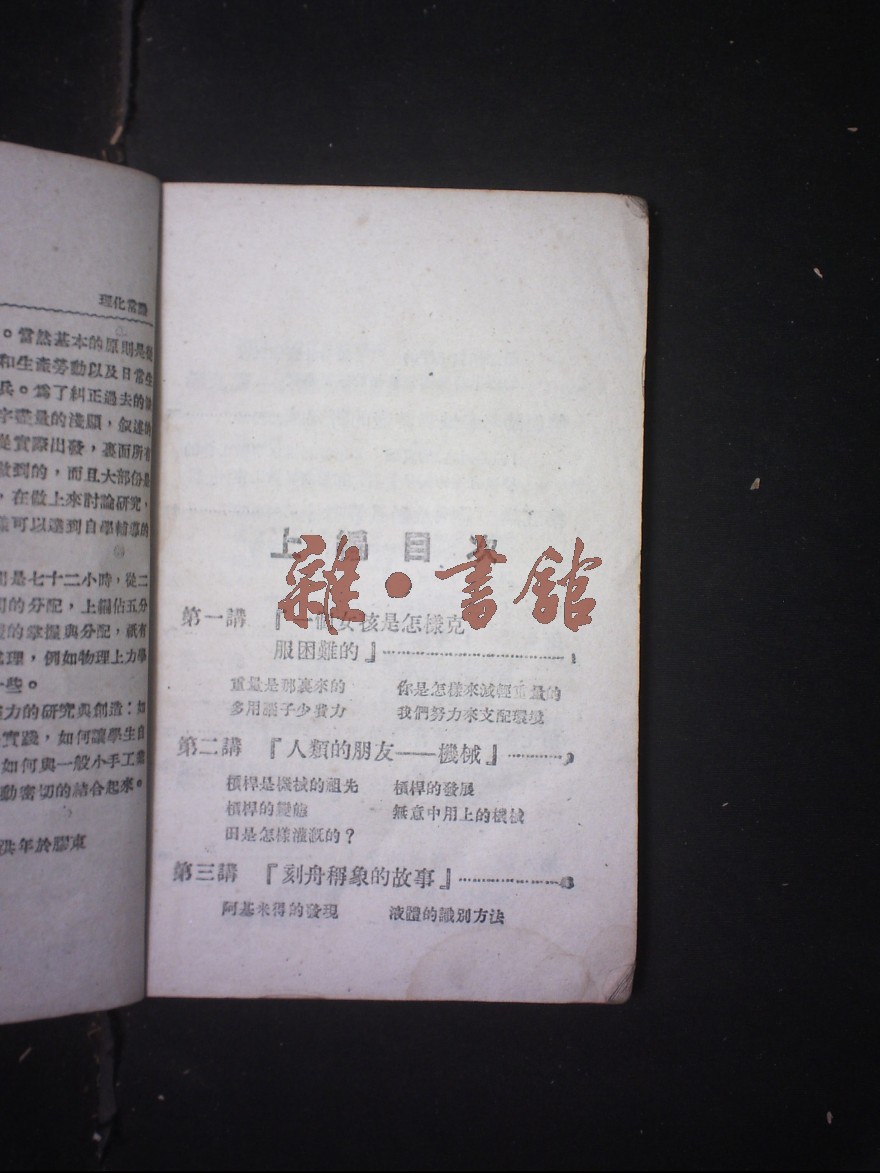 理化常識
。當然基本的原則是
和生產勞動以及日常生
兵。爲了糾正過去的
字盡量的淺顯,叙述
是實際出發,裏面所有
做到的,而且大部份是
,在做上來討論研究,
樣可以達到自學輔導的
間是七十二小時,從二
間的分配,上編佔五分
的掌握與分配,祇有
處理,例如物理上力學
一些。
力的研究與創造:如
實踐,如何讓學生自
如何與一般小手工業
動密切的結合起來。
洪年於膠東
上編目次
雜·書館
第一講 『一個女孩是怎樣克
服困難的』……………………1
重量是那裏來的 你是怎樣來減輕重量的
多用腦子少費力 我們努力來支配環境
第二講 『人類的朋友——機械』…………
槓桿是機械的祖先 槓桿的發展
槓桿的變態 無意中用上的機械
田是怎樣灌溉的?
第三講 『刻舟稱象的故事』……………
阿基米得的發現 液體的識別方法